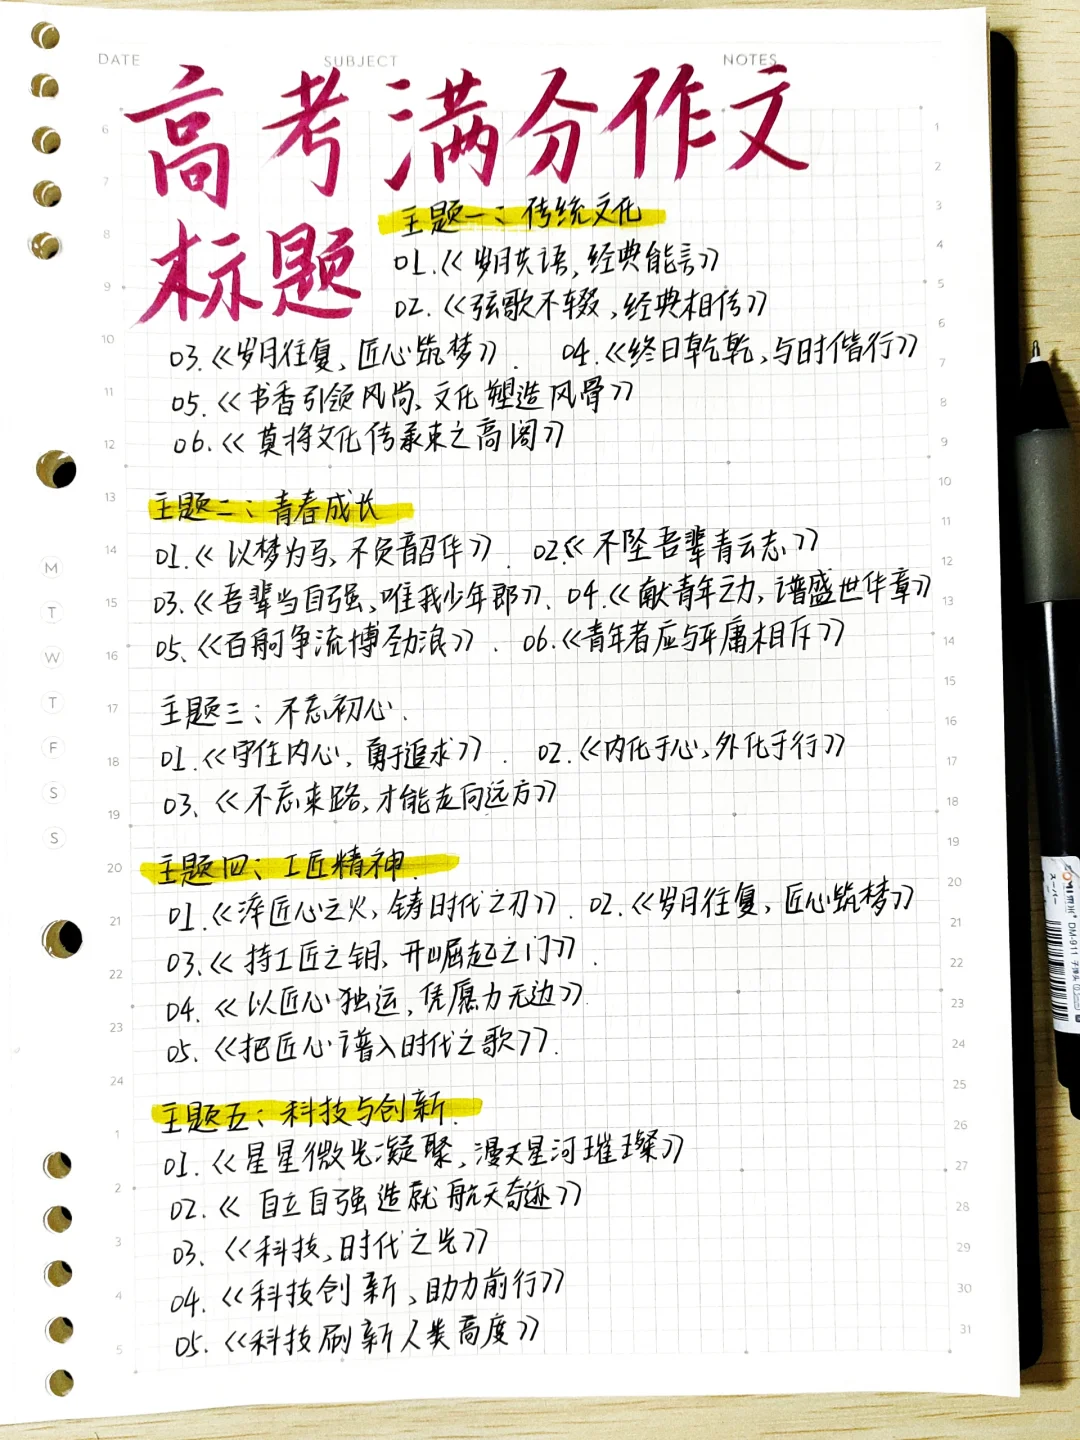 DATE SUBJECT NOTES
高考满分作文
标题
主题一：传统文化
01.《岁月失语,经典能言》
02.《弦歌不辍,经典相传》
03.《岁月往复,匠心筑梦》. 04.《终日乾乾,与时偕行》
05.《书香引领风尚,文化塑造风骨》
06.《莫将文化传承束之高阁》
主题二：青春成长
01.《以梦为马,不负韶华》. 02.《不坠吾辈青云志》
03.《吾辈当自强,唯我少年郎》、04.《献青年之力,谱盛世华章》
05、《百舸争流博劲浪》. 06.《青年者应与平庸相斥》
主题三：不忘初心.
01.《守住内心,勇于追求》. 02.《内化于心,外化于行》
03、《不忘来路,才能走向远方》
主题四：工匠精神.
01.《淬匠心之火,铸时代之刃》. 02.《岁月往复,匠心筑梦》
03.《持工匠之钥,开崛起之门》.
04.《以匠心独运,凭愿力无边》
05、《把匠心谱入时代之歌》.
主题五：科技与创新.
01.《星星微光凝聚,漫天星河璀璨》
02.《自立自强造就航天奇迹》
03、《科技,时代之光》
04.《科技创新,助力前行》
05.《科技刷新人类高度》
6
7
8
9
10
11
12
13
14
15
16
17
18
19
20
21
22
23
24
1
2
3
4
5
1
2
3
4
5
6
7
8
9
10
11
12
13
14
15
16
17
18
19
20
21
22
23
24
25
26
27
28
29
30
31
M
T
W
T
F
S
S
DM-911